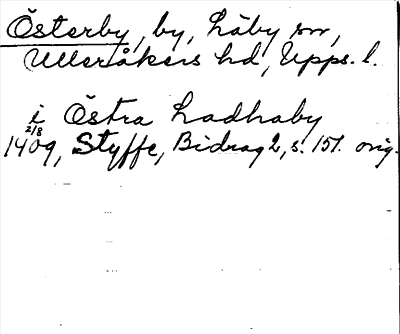 Österby, by, Läby sn,
Ulleråkers hd, Upps. l.
i Östra Ladhaby
2/8
1409, Styffe, Bidrag 2, s. 151. orig.